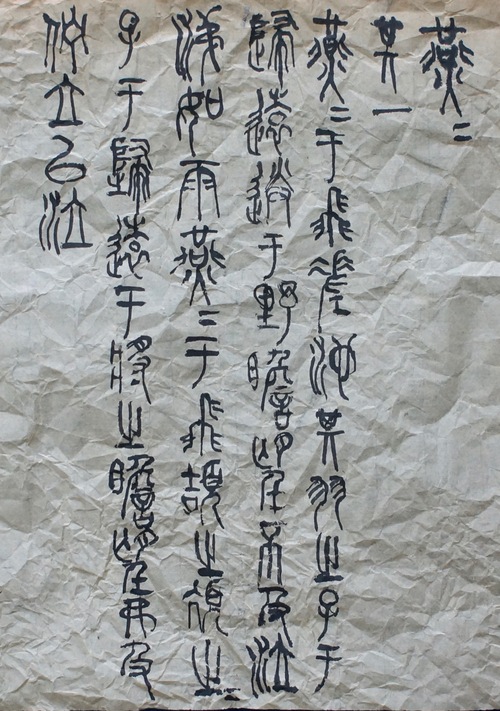 燕〻
其一
燕〻于飛差池其羽之子于
歸遠送于野瞻望弗及泣
涕如雨燕〻于飛頡之頏之〻
子于歸遠于將之瞻望弗及
佇立以泣